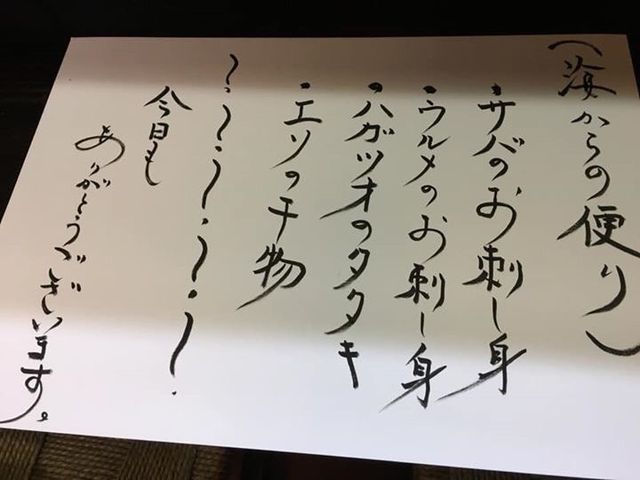 (海からの便り)
・サバのお刺し身
・ウルメのお刺し身
・ハガツオのタタキ
・エソの干物
～・～・～・～・～・
今日も
ありがとうございます。